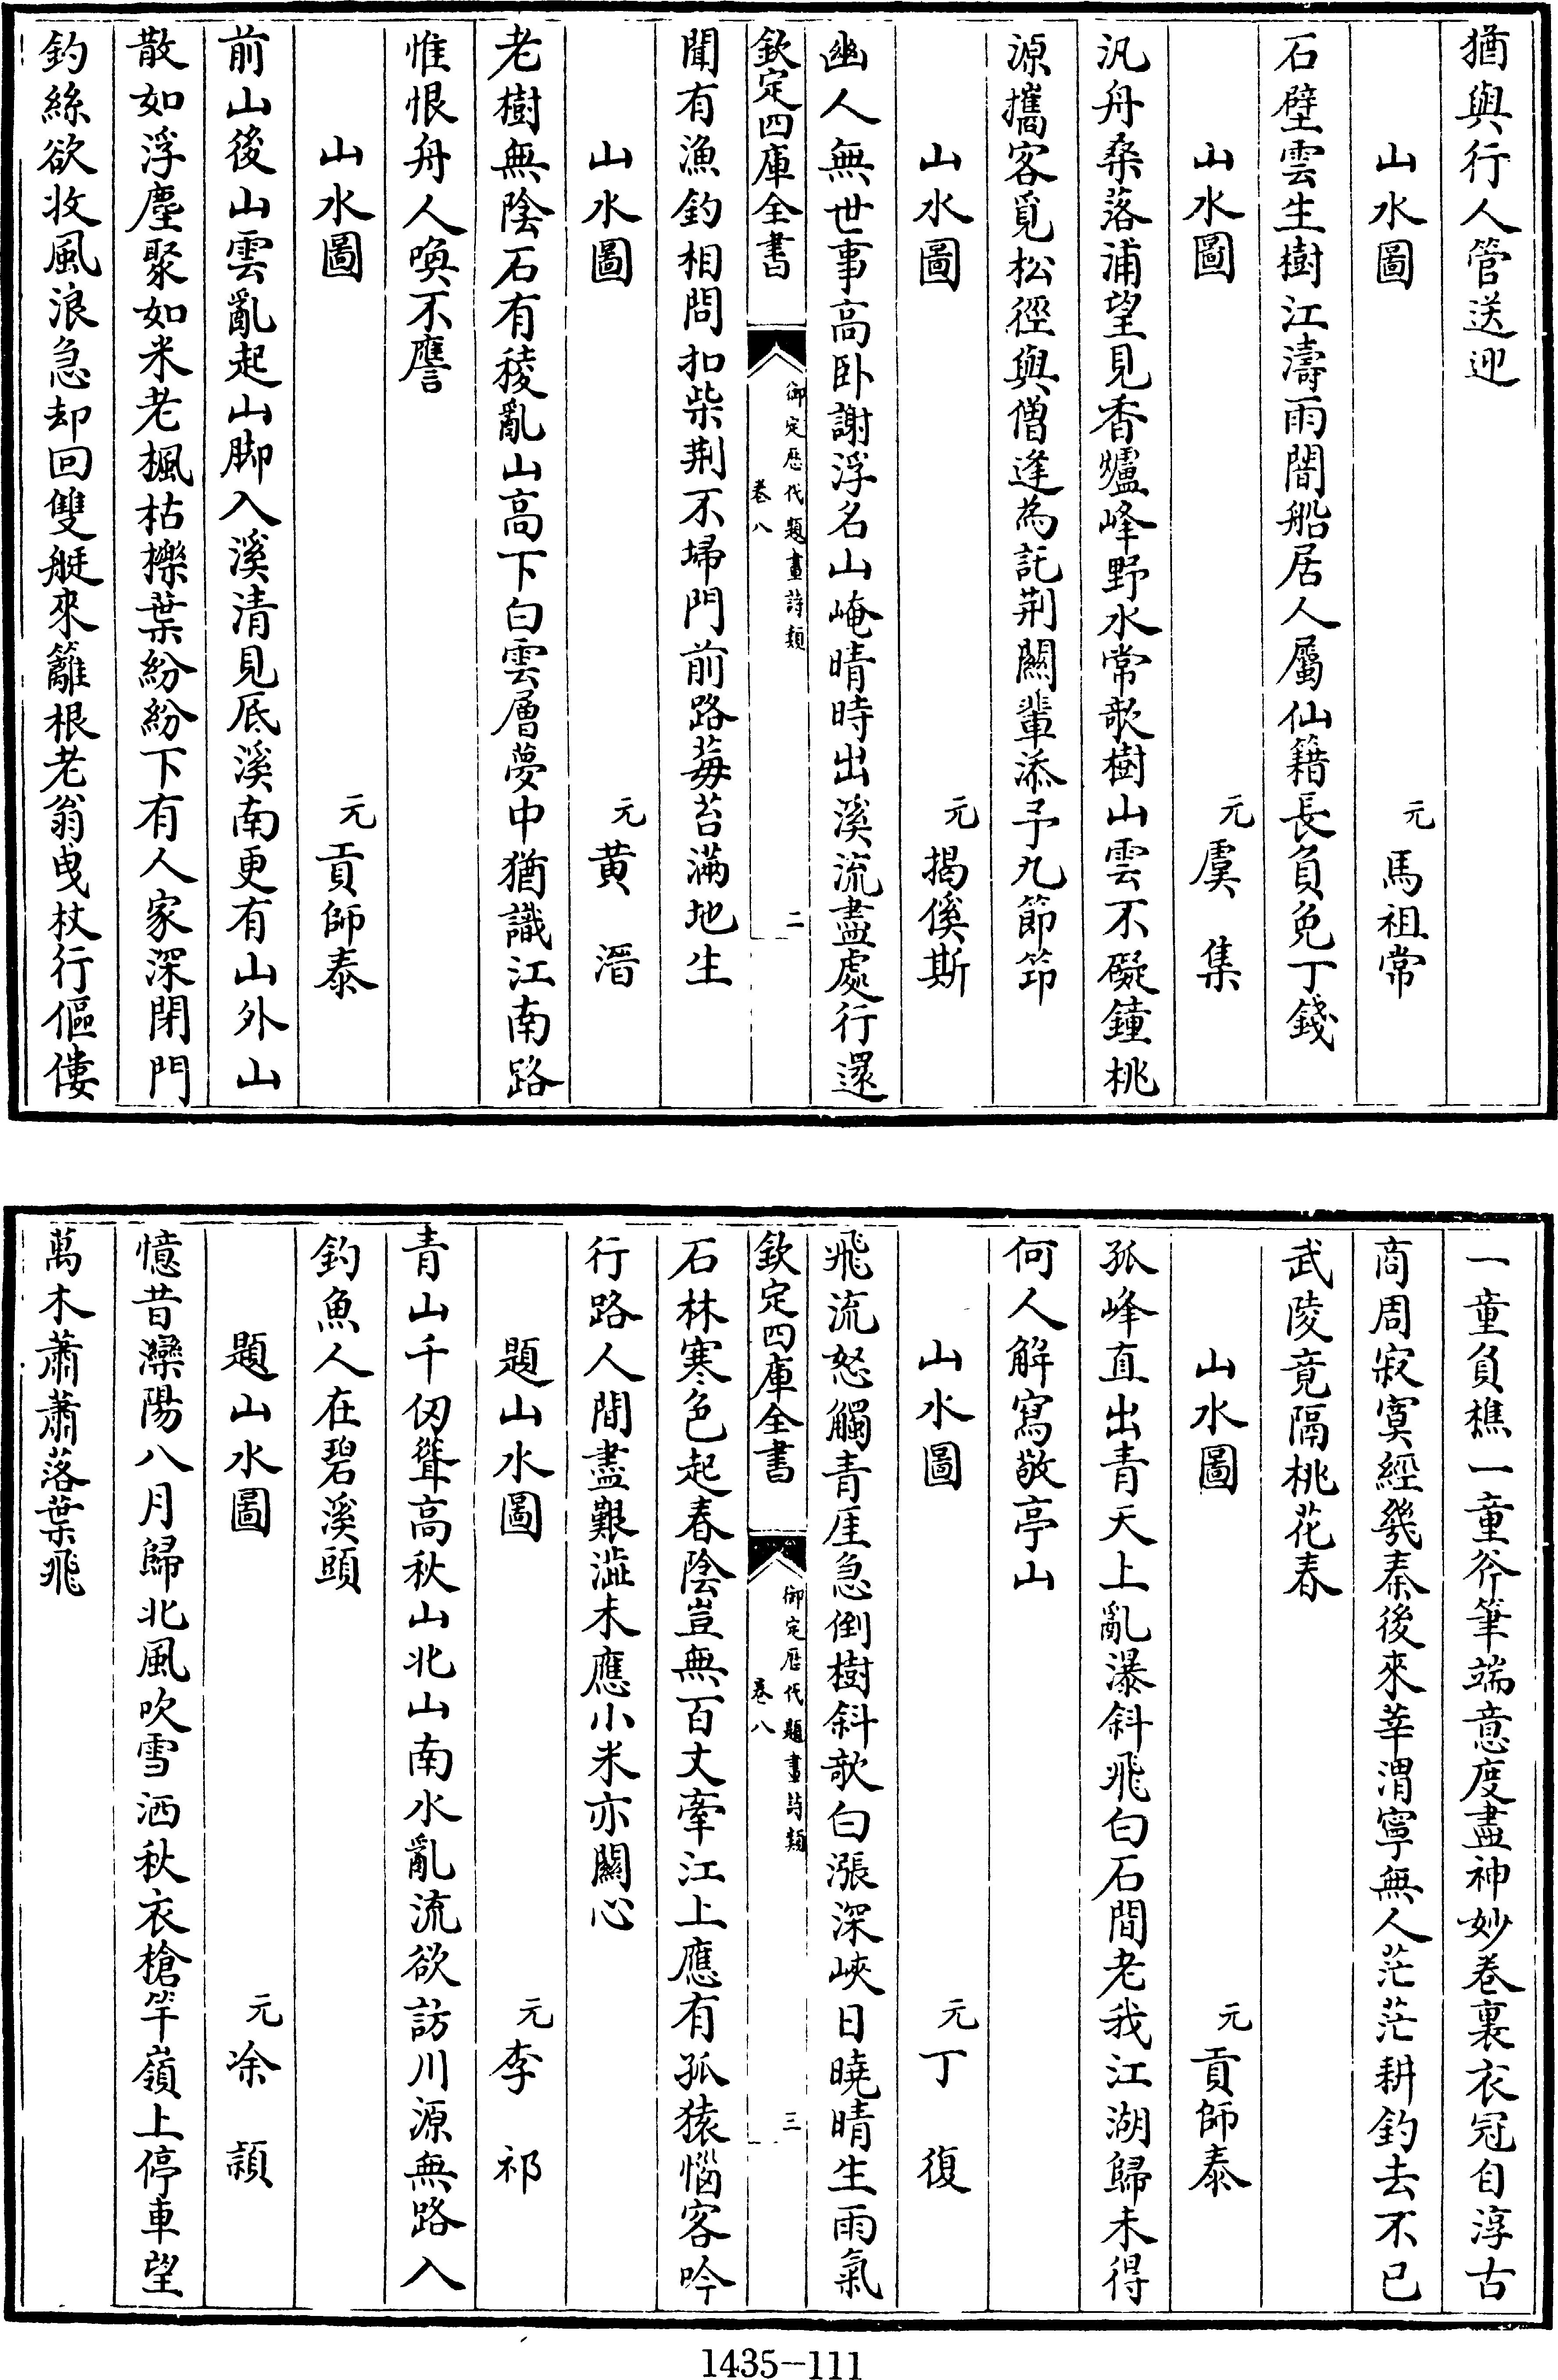 猶與行人管送迎
山水圖　元馬祖常
石壁雲生樹江濤雨闇船居人屬仙籍長負免丁錢
山水圖　元虞集
汎舟桑落浦望見香爐峰野水常欹樹山雲不礙鐘桃
源攜客覓松徑與僧逢為託荆關輩添予九節笻
山水圖　元揭傒斯
幽人無世事高卧謝浮名山崦晴時出溪流盡處行還
欽定四庫全書　御定歷代題畫詩類　卷八　二
聞有漁釣相問扣柴荆不埽門前路莓苔滿地生
山水圖　元黄溍
老樹無陰石有稜亂山高下白雲層夢中猶識江南路
惟恨舟人喚不譍
山水圖　元貢師泰
前山後山雲亂起山脚入溪清見底溪南更有山外山
散如浮塵聚如米老楓枯櫟葉紛紛下有人家深閉門
釣絲欲收風浪急却回雙艇來籬根老翁曳杖行傴僂
一童負樵一童斧筆端意度盡神妙卷裏衣冠自淳古
商周寂寞經幾秦後來莘渭寧無人茫茫耕釣去不已
武陵竟隔桃花春
山水圖　元貢師泰
孤峰直出青天上亂瀑斜飛白石間老我江湖歸未得
何人解寫敬亭山
山水圖　元丁復
飛流怒觸青厓急倒樹斜欹白漲深峽日曉晴生雨氣
欽定四庫全書　御定歷代題畫詩類　卷八　三
石林寒色起春陰豈無百丈牽江上應有孤猿惱客吟
行路人間盡艱澁未應小米亦關心
題山水圖　元李祁
青山千仭聳高秋山北山南水亂流欲訪川源無路入
釣魚人在碧溪頭
題山水圖　元凃穎
憶昔灤陽八月歸北風吹雪洒秋衣槍竿嶺上停車望
萬木蕭蕭落葉飛
1435-111